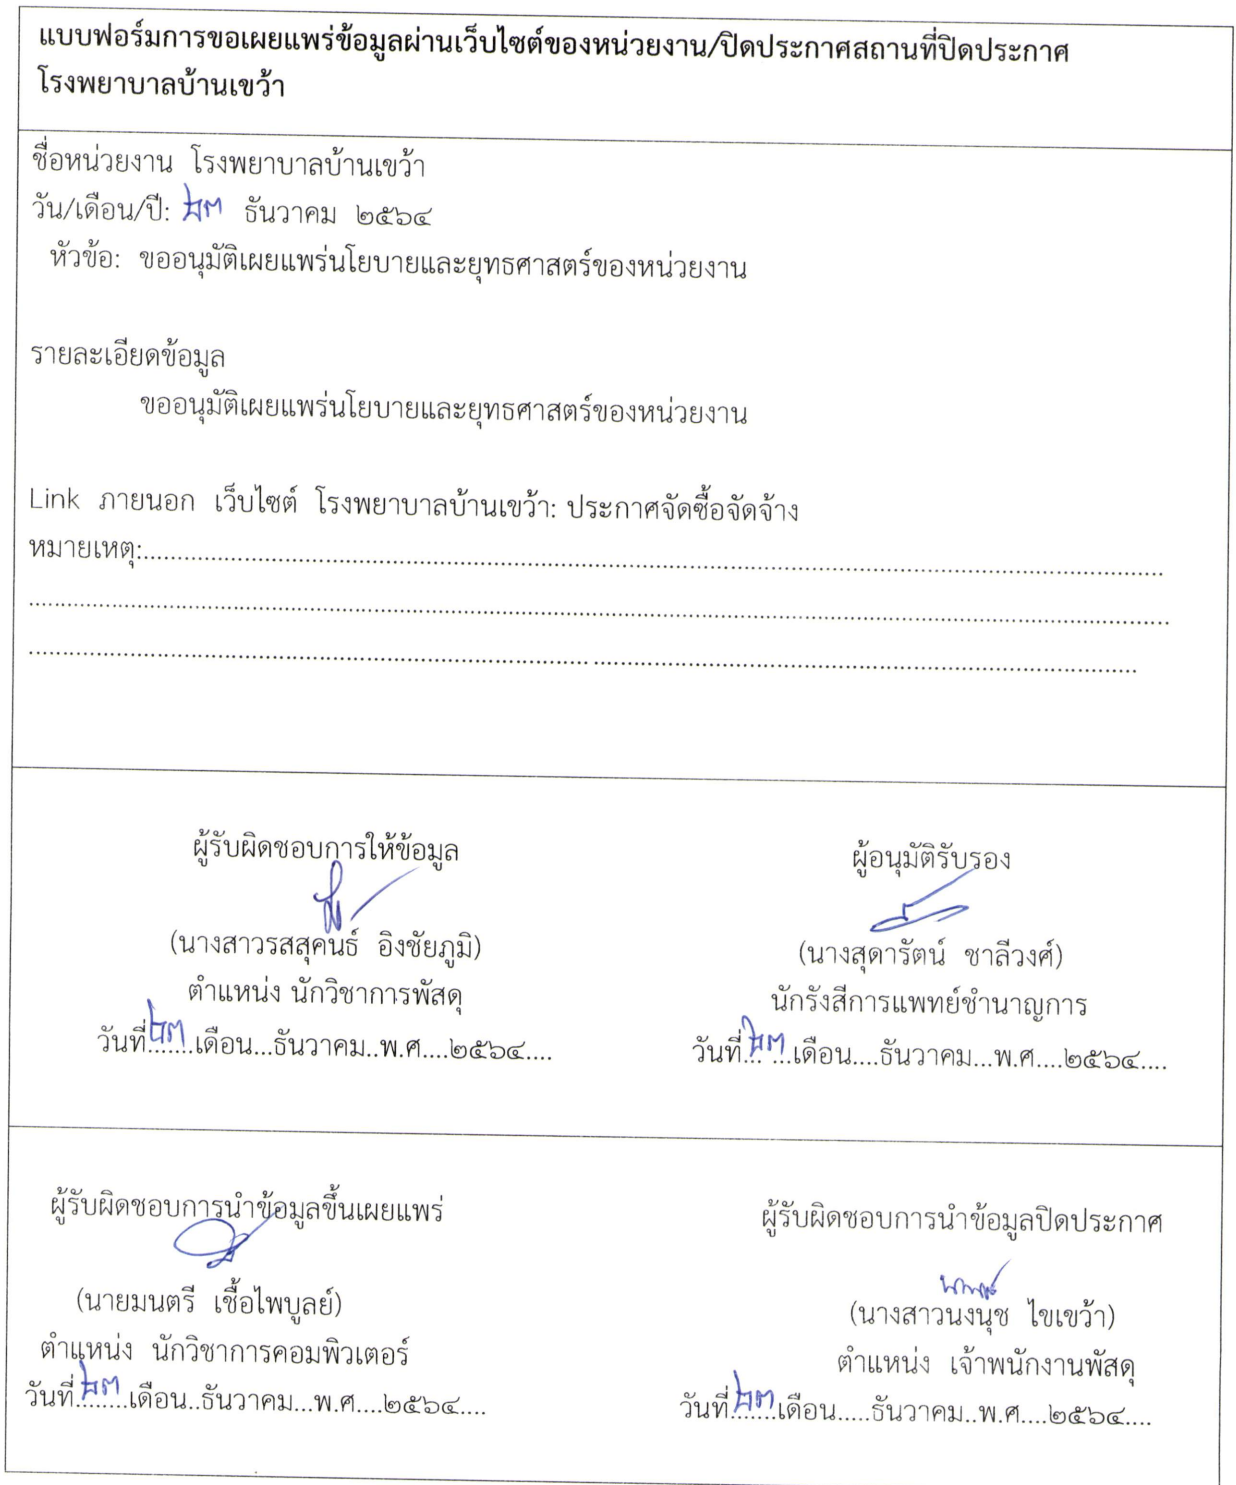 แบบฟอร์มการขอเผยแพร่ข้อมูลผ่านเว็บไซต์ของหน่วยงาน/ปิดประกาศสถานที่ปิดประกาศ
โรงพยาบาลบ้านเขว้า
ชื่อหน่วยงาน โรงพยาบาลบ้านเขว้า
วัน/เดือน/ปี: ๒๓ ธันวาคม ๒๕๖๔
หัวข้อ: ขออนุมัติเผยแพร่นโยบายและยุทธศาสตร์ของหน่วยงาน
รายละเอียดข้อมูล
ขออนุมัติเผยแพร่นโยบายและยุทธศาสตร์ของหน่วยงาน
Link ภายนอก เว็บไซต์ โรงพยาบาลบ้านเขว้า: ประกาศจัดซื้อจัดจ้าง
หมายเหตุ:
ผู้รับผิดชอบการให้ข้อมูล
(นางสาวรสสุคนธ์ อิงชัยภูมิ)
ตำแหน่ง นักวิชาการพัสดุ
วันที่ ๒๓ เดือน...ธันวาคม..พ.ศ....๒๕๖๔....
ผู้อนุมัติรับรอง
(นางสุดารัตน์ ชาลีวงศ์)
นักรังสีการแพทย์ชำนาญการ
วันที่ ๒๓ เดือน....ธันวาคม...พ.ศ....๒๕๖๔....
ผู้รับผิดชอบการนำข้อมูลขึ้นเผยแพร่
(นายมนตรี เชื้อไพบูลย์)
ตำแหน่ง นักวิชาการคอมพิวเตอร์
วันที่ ๒๓ เดือน..ธันวาคม...พ.ศ....๒๕๖๔....
ผู้รับผิดชอบการนำข้อมูลปิดประกาศ
(นางสาวนงนุช ไขเขว้า)
ตำแหน่ง เจ้าพนักงานพัสดุ
วันที่ ๒๓ เดือน.....ธันวาคม..พ.ศ....๒๕๖๔....